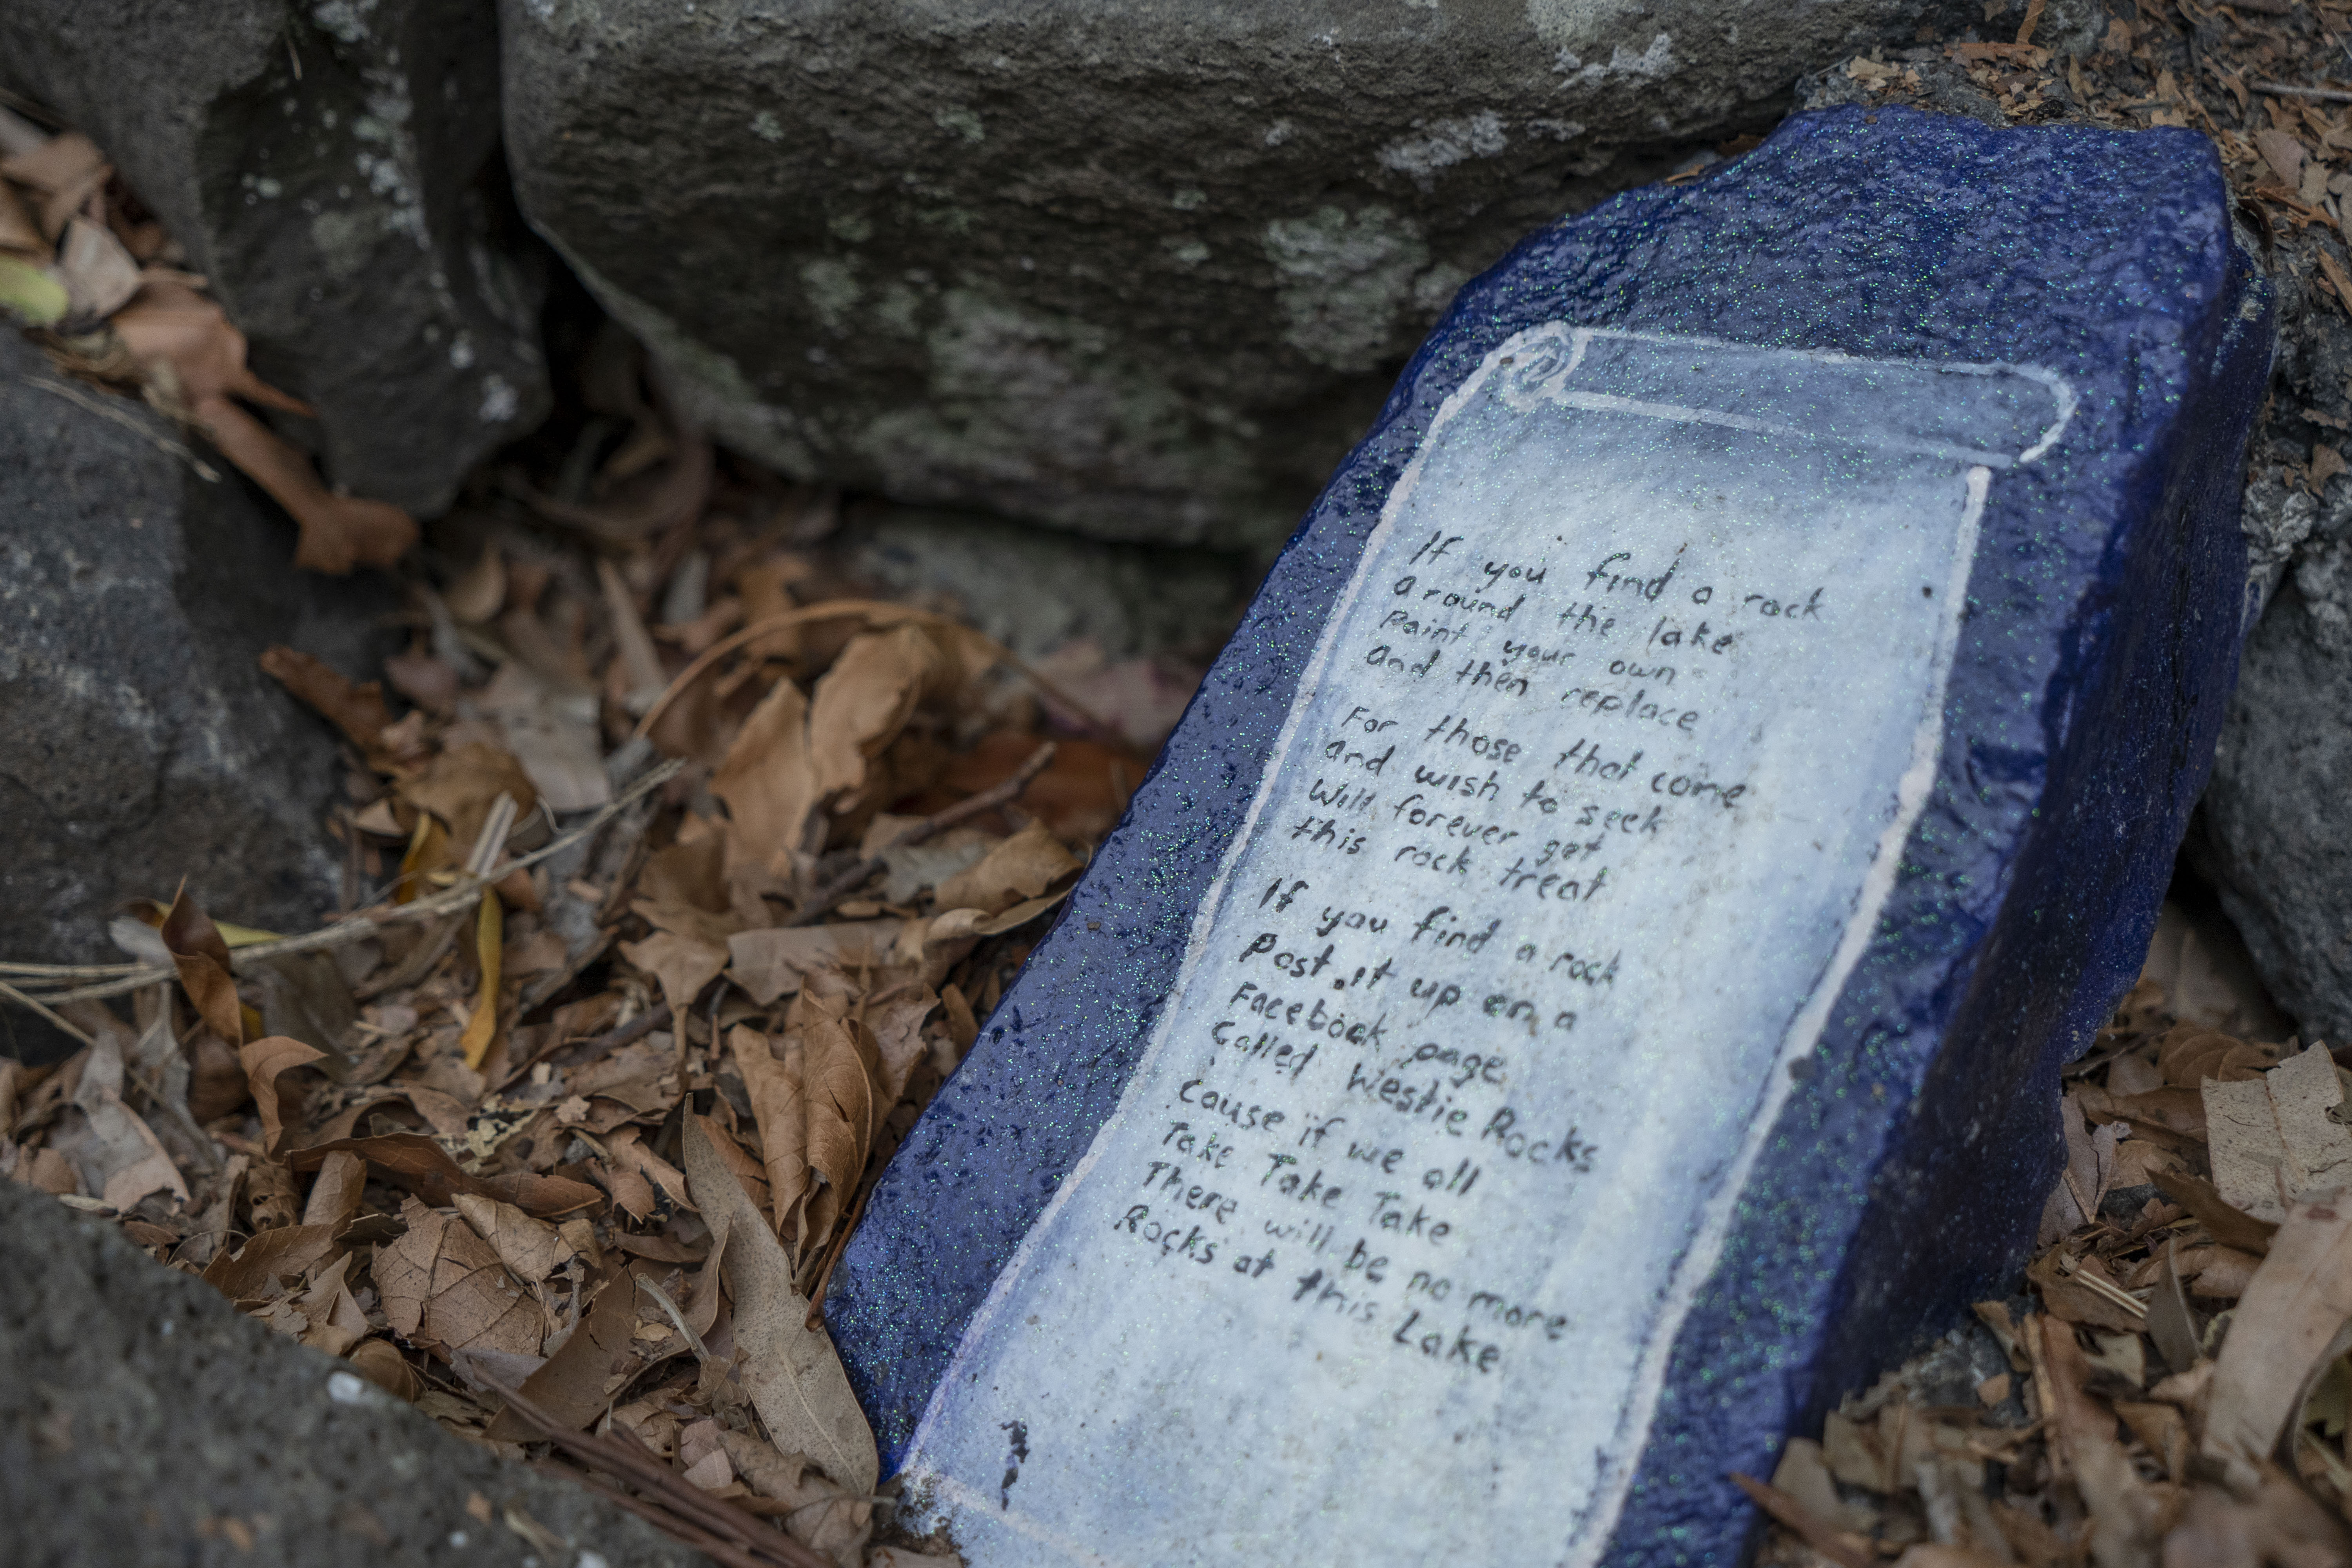 If you find a rock
around the lake
Paint your own
and then replace
For those that come
and wish to seek
Will forever get
this rock treat
If you find a rock
Post it up on a
Facebook page
Called Westie Rocks
Cause if we all
Take Take Take
There will be no more
Rocks at this Lake